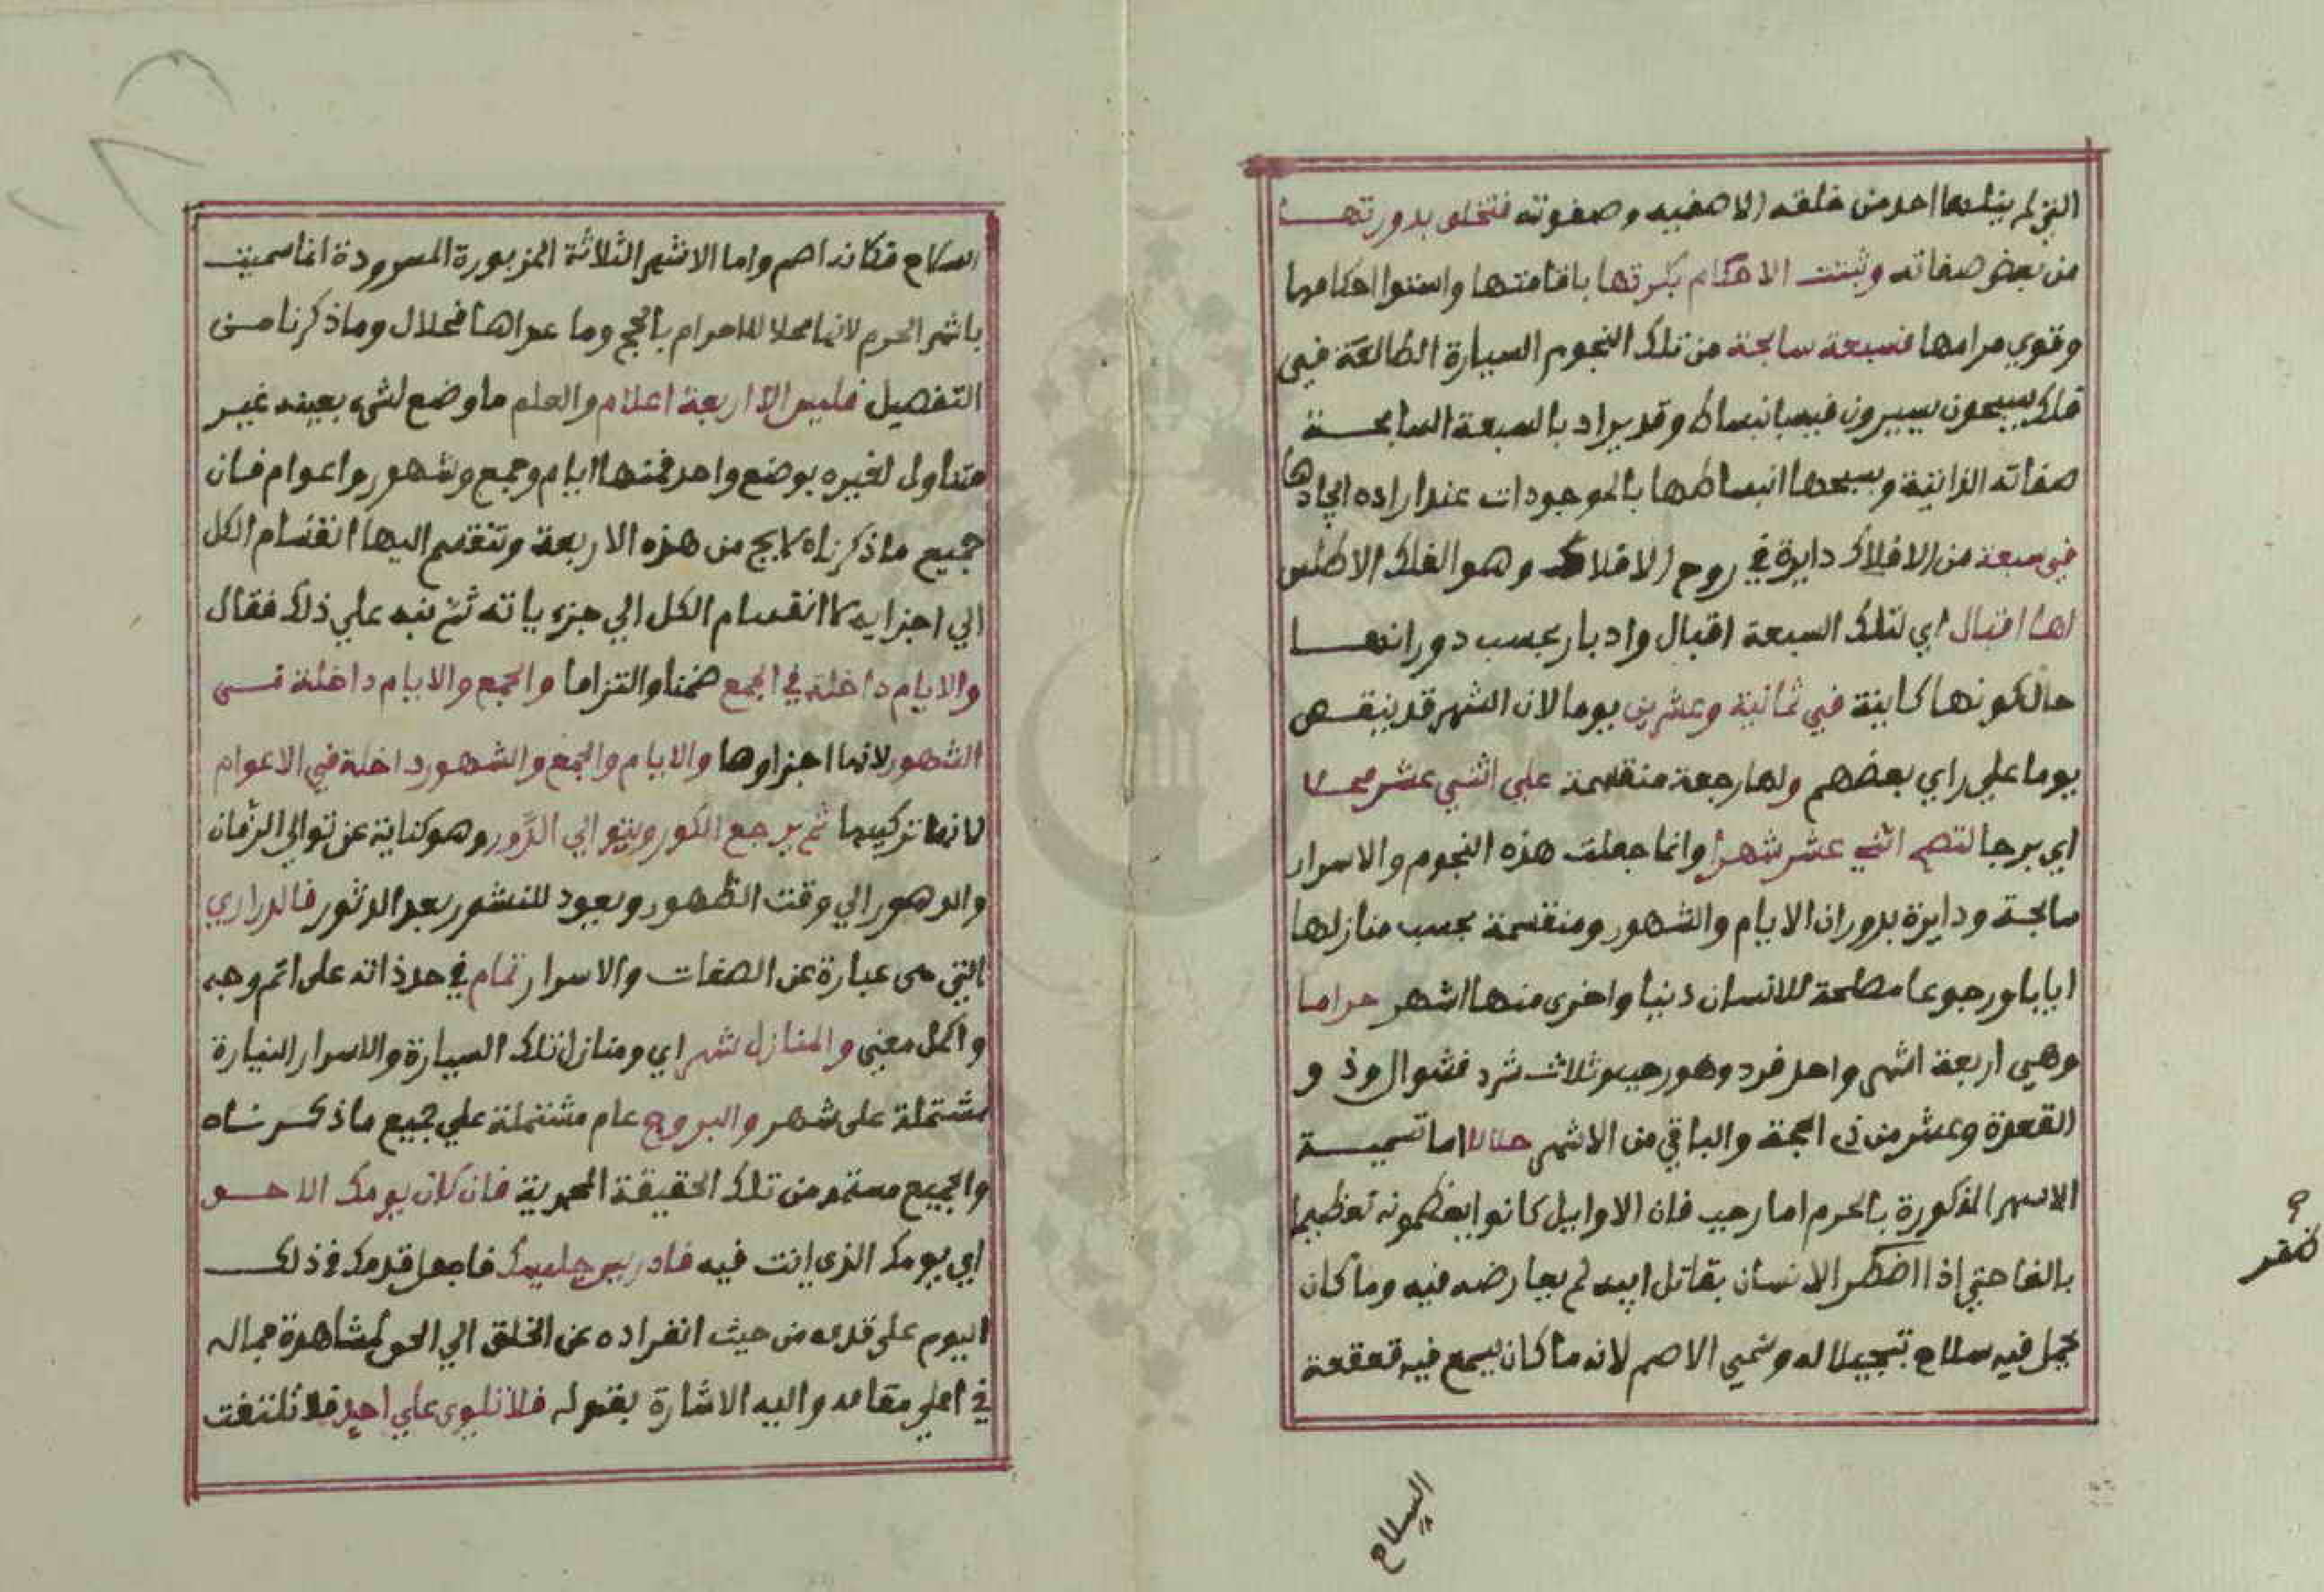 التي لم ينلها احد من خلقه الا صفيه وصفوته فتخلق بدورتها
من بعض صفاته وثبتت الاحكام بكرتها باقامتها واستوا احكامها
وقوي مرامها فسبعة سابحة من تلك النجوم السيارة الطالعة في
فلك يسبحون يسيرون فيه بانبساط وقد يراد بالسبعة السابحة
صفاته الذاتية وبسبحها انبساطها بالموجودات عند اراده ايجادها
في سبعة من الافلاك دايرة في روح الافلاك وهو الفلك الاطلس
لها اقبال اي لتلك السبعة اقبال وادبار بحسب دورانها
حال كونها كاينة في ثمانية وعشرين يوما لان الشهر قد ينقص
يوما علي راي بعضهم ولها رجعة منقسمة علي اثني عشر محلا
اي برجا لتتم اثني عشر شهرا وانما جعلت هذه النجوم والاسرار
سابحة ودايرة بدوران الايام والشهور ومنقسمة بحسب منازلها
ايابا ورجوعا مصلحة للانسان دنيا واخرى منها اشهر حراما
وهي اربعة اشهر واحد فرد وهو رجب وثلاث سرد فشوال وذ و
القعدة وعشر من ذى الحجة والباقي من الاشهر حلالا اما تسمية
الاشهر المذكورة بالحرم اما رجب فان الاوايل كانوا يعظمونه تعظيما
بالغا حتي اذا اضطر الانسان بقاتل ابيه لم يعارضه فيه وما كان
يحمل فيه سلاح تبجيلا له وسمي الاصم لانه ما كان يسمع فيه قعقعة
السلاح
السلاح فكانه اصم واما الاشهر الثلاثة المزبورة المسرودة انما سميت
باشهر الحرم لانها محلا للاحرام بالحج وما عداها فحلال وما ذكرنا من
التفصيل فليس الا اربعة اعلام والعلم ما وضع لشيء بعينه غير
متناول لغيره بوضع واحد فمنها ايام وجمع وشهور واعوام فان
جميع ما ذكرناه لا يخرج من هذه الاربعة وتنقسم اليها انقسام الكل
الي اجزايه لا انقسام الكل الي جزء ياته ثم نبه علي ذلك فقال
والايام داخلة في الجمع ضمنا والتزاما والجمع والايام داخلة في
الشهور لانها اجزاوها والايام والجمع والشهور داخلة في الاعوام
لانها تركيبها ثم يرجع الكور وينوالي الدَّور وهو كناية عن توالي الزمان
والدهور الي وقت الظهور ويعود للنشور بعد الدثور فالدراري
التي هى عبارة عن الصفات والاسرار تمام في حد ذاته على اتم وجه
واكمل معني والمنازل شهر اي ومنازل تلك السيارة والاسرار النيارة
مشتملة على شهر والبروج عام مشتملة علي جميع ما ذكرناه
والجميع مستمد من تلك الحقيقة المحمدية فان كان يومك الاحد
اي يومك الذي انت فيه فادريس جليسك فاجعل قدمك في ذلك
اليوم على قدمه من حيث انفراده عن الخلق الي الحق لمشاهدة جماله
في اعلي مقامه واليه الاشارة بقوله فلا تلوى علي احد فلا تلتفت